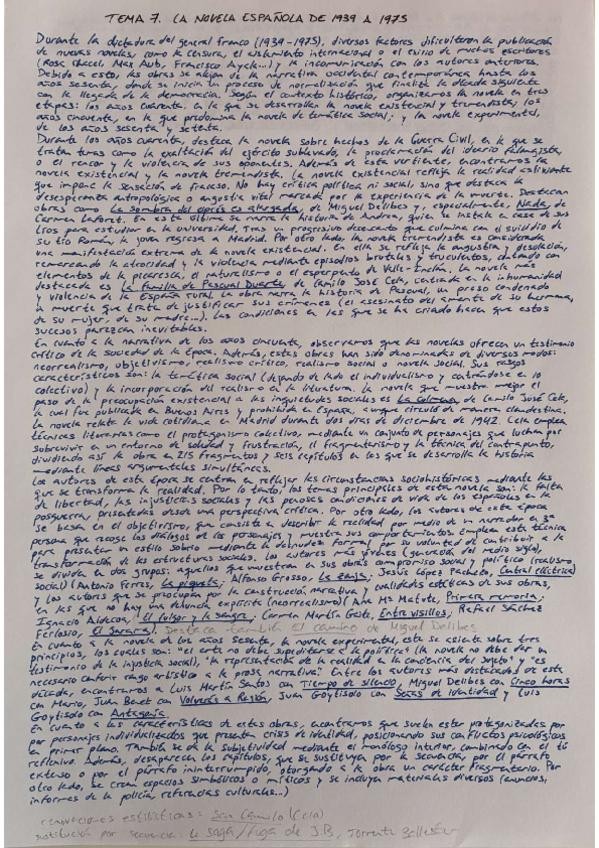 TEMA 7. LA NOVELA ESPAÑOLA DE 1939 A 1975
Durante la dictadura del general Franco (1939-1975), diversos factores dificultaron la publicación
de nuevas novelas, como la censura, el aislamiento internacional o el exilio de muchos escritores
(Rosa Chacel, Max Aub, Francisco Ayala...) y la incomunicación con los autores anteriores.
Debido a esto, las obras se alejan de la narrativa occidental contemporánea hasta los
años sesenta, donde se inicia un proceso de normalización que finaliza la década siguiente
con la llegada de la democracia. Según el contexto histórico, organizamos la novela en tres
etapas: los años cuarenta, en la que se desarrollan la novela existencial y tremendista; los
años cincuenta, en la que predomina la novela de temática social; y la novela experimental,
de los años sesenta y setenta.
Durante los años cuarenta, destaca la novela sobre hechos de la Guerra Civil, en la que se
tratan temas como la exaltación del ejército sublevado, la proclamación del ideario falangista,
o el rencor y la violencia de sus oponentes. Además de esta vertiente, encontramos la
novela existencial y la novela tremendista. La novela existencial refleja la realidad asfixiante
que impone la sensación de fracaso. No hay crítica política ni social, sino que destaca la
desesperanza antropológica o angustia vital marcada por la experiencia de la muerte. Destacan
obras como La sombra del ciprés es alargada, de Miguel Delibes y, especialmente, Nada, de
Carmen Laforet. En esta última se narra la historia de Andrea, quien se instala en casa de sus
tíos para estudiar en la universidad. Tras un progresivo desencanto que culmina con el suicidio de
su tío Román, la joven regresa a Madrid. Por otro lado, la novela tremendista es considerada
una manifestación extrema de la novela existencial. En ella se refleja la angustia y desolación,
remarcando la atrocidad y la violencia mediante episodios brutales y truculentos, contando con
elementos de la picaresca, el naturalismo o el esperpento de Valle-Inclán. La novela más
destacada es La familia de Pascual Duarte, de Camilo José Cela, centrada en la inhumanidad
y violencia de la España rural. La obra narra la historia de Pascual, un preso condenado
a muerte que trata de justificar sus crímenes (el asesinato del amante de su hermana,
de su mujer, de su madre...). Las condiciones en las que se ha criado hacen que estos
sucesos parezcan inevitables.
En cuanto a la narrativa de los años cincuenta, observamos que las novelas ofrecen un testimonio
crítico de la sociedad de la época. Además, estas obras han sido denominadas de diversos modos:
neorrealismo, objetivismo, realismo crítico, realismo social o novela social. Sus rasgos
característicos son: la temática social (dejando de lado el individualismo y centrándose en lo
colectivo) y la incorporación del realismo en la literatura. La novela que muestra mejor el
paso de la preocupación existencial a las inquietudes sociales es La colmena, de Camilo José Cela,
la cual fue publicada en Buenos Aires y prohibida en España, aunque circuló de manera clandestina.
La novela relata la vida cotidiana en Madrid durante dos días de diciembre de 1942. Cela emplea
técnicas literarias como el protagonismo colectivo, mediante un conjunto de personajes que luchan por
sobrevivir en un entorno de soledad y frustración, el fragmentarismo y la técnica del contrapunto,
dividiendo así la obra en 215 fragmentos y seis capítulos en los que se desarrolla la historia
mediante líneas argumentales simultáneas.
Los autores de esta época se centran en reflejar las circunstancias sociohistóricas mediante las
que se transforma la realidad. Por lo tanto, los temas principales de esta novela son: la falta
de libertad, las injusticias sociales y las penosas condiciones de vida de los españoles en la
posguerra, presentadas desde una perspectiva crítica. Por otro lado, los autores de esta época
se basan en el objetivismo, que consiste en describir la realidad por medio de un narrador en 3ª
persona que recoge los diálogos de los personajes y muestra sus comportamientos. Emplean esta técnica
para presentar un estilo sobrio mediante la desnudez formal por su voluntad de contribuir a la
transformación de las estructuras sociales. Los autores más jóvenes (generación del medio siglo),
se divide en dos grupos: aquellos que muestran en sus obras compromiso social y político (realismo
social) (Antonio Ferres, La piqueta; Alfonso Grosso, La zanja; Jesús López Pacheco, Central eléctrica)
y los autores que se preocupan por la construcción narrativa y cualidades estéticas de sus obras,
en las que no hay una denuncia explícita (neorrealismo) (Ana Mª Matute, Primera memoria;
Ignacio Aldecoa, El fulgor y la sangre; Carmen Martín Gaite, Entre visillos; Rafael Sánchez
Ferlosio, El Jarama). Destaca también El camino de Miguel Delibes
En cuanto a la novela de los años sesenta, la novela experimental, esta se asienta sobre tres
principios, los cuales son: "el arte no debe supeditarse a la política" (la novela no debe dar un
testimonio de la injusticia social), "la representación de la realidad en la conciencia del sujeto" y "es
necesario conferir rango artístico a la prosa narrativa". Entre los autores más destacados de esta
década, encontramos a Luis Martín Santos con Tiempo de silencio, Miguel Delibes con Cinco horas
con Mario, Juan Benet con Volverás a Región, Juan Goytisolo con Señas de identidad y Luis
Goytisolo con Antagonía.
En cuanto a las características de estas obras, encontramos que suelen estar protagonizadas por
por personajes individualizados que presentan crisis de identidad, posicionando sus conflictos psicológicos
en primer plano. También se da la subjetividad mediante el monólogo interior, combinado con el tú
reflexivo. Además, desaparecen los capítulos, que se sustituyen por la secuencia, por el párrafo
extenso o por el párrafo ininterrumpido, otorgando a la obra un carácter fragmentario. Por
otro lado, se crean espacios simbólicos o míticos y se incluyen materiales diversos (anuncios,
informes de la policía, referencias culturales...)
renovaciones estilísticas: San Camilo (Cela)
sustitución por secuencia: La saga/fuga de J.B, Torrente Ballester